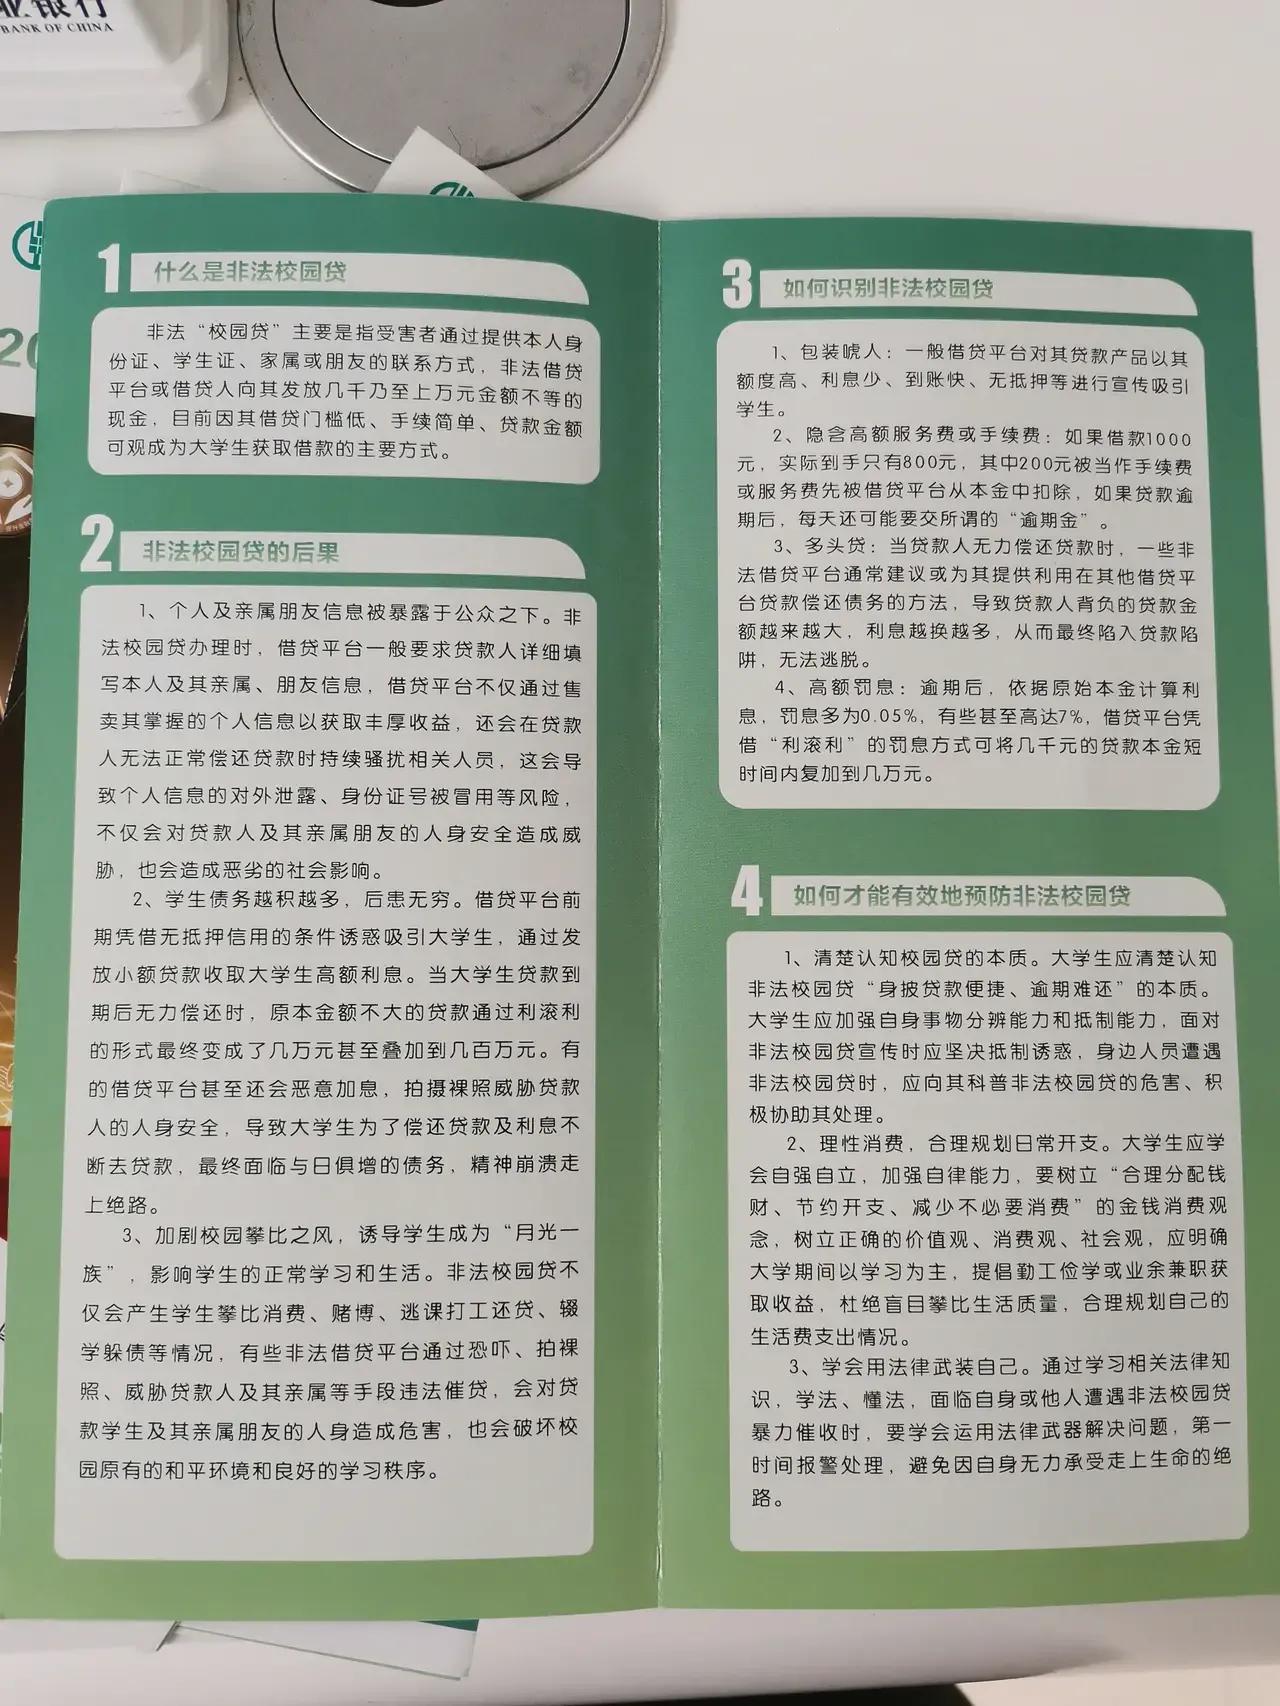 业银行
BANK OF CHINA
20
1 什么是非法校园贷
非法“校园贷”主要是指受害者通过提供本人身
份证、学生证、家属或朋友的联系方式，非法借贷
平台或借贷人向其发放几千乃至上万元金额不等的
现金，目前因其借贷门槛低、手续简单、贷款金额
可观成为大学生获取借款的主要方式。
2 非法校园贷的后果
1、个人及亲属朋友信息被暴露于公众之下。非
法校园贷办理时，借贷平台一般要求贷款人详细填
写本人及其亲属、朋友信息，借贷平台不仅通过售
卖其掌握的个人信息以获取丰厚收益，还会在贷款
人无法正常偿还贷款时持续骚扰相关人员，这会导
致个人信息的对外泄露、身份证号被冒用等风险，
不仅会对贷款人及其亲属朋友的人身安全造成威
胁，也会造成恶劣的社会影响。
2、学生债务越积越多，后患无穷。借贷平台前
期凭借无抵押信用的条件诱惑吸引大学生，通过发
放小额贷款收取大学生高额利息。当大学生贷款到
期后无力偿还时，原本金额不大的贷款通过利滚利
的形式最终变成了几万元甚至叠加到几百万元。有
的借贷平台甚至还会恶意加息，拍摄裸照威胁贷款
人的人身安全，导致大学生为了偿还贷款及利息不
断去贷款，最终面临与日俱增的债务，精神崩溃走
上绝路。
3、加剧校园攀比之风，诱导学生成为“月光一
族”，影响学生的正常学习和生活。非法校园贷不
仅会产生学生攀比消费、赌博、逃课打工还贷、辍
学躲债等情况，有些非法借贷平台通过恐吓、拍裸
照、威胁贷款人及其亲属等手段违法催贷，会对贷
款学生及其亲属朋友的人身造成危害，也会破坏校
园原有的和平环境和良好的学习秩序。
3 如何识别非法校园贷
1、包装唬人：一般借贷平台对其贷款产品以其
额度高、利息少、到账快、无抵押等进行宣传吸引
学生。
2、隐含高额服务费或手续费：如果借款1000
元，实际到手只有800元，其中200元被当作手续费
或服务费先被借贷平台从本金中扣除，如果贷款逾
期后，每天还可能要交所谓的“逾期金”。
3、多头贷：当贷款人无力偿还贷款时，一些非
法借贷平台通常建议或为其提供利用在其他借贷平
台贷款偿还债务的方法，导致贷款人背负的贷款金
额越来越大，利息越换越多，从而最终陷入贷款陷
阱，无法逃脱。
4、高额罚息：逾期后，依据原始本金计算利
息，罚息多为0.05%，有些甚至高达7%，借贷平台凭
借“利滚利”的罚息方式可将几千元的贷款本金短
时间内复加到几万元。
4 如何才能有效地预防非法校园贷
1、清楚认知校园贷的本质。大学生应清楚认知
非法校园贷“身披贷款便捷、逾期难还”的本质。
大学生应加强自身事物分辨能力和抵制能力，面对
非法校园贷宣传时应坚决抵制诱惑，身边人员遭遇
非法校园贷时，应向其科普非法校园贷的危害、积
极协助其处理。
2、理性消费，合理规划日常开支。大学生应学
会自强自立，加强自律能力，要树立“合理分配钱
财、节约开支、减少不必要消费”的金钱消费观
念，树立正确的价值观、消费观、社会观，应明确
大学期间以学习为主，提倡勤工俭学或业余兼职获
取收益，杜绝盲目攀比生活质量，合理规划自己的
生活费支出情况。
3、学会用法律武装自己。通过学习相关法律知
识，学法、懂法，面临自身或他人遭遇非法校园贷
暴力催收时，要学会运用法律武器解决问题，第一
时间报警处理，避免因自身无力承受走上生命的绝
路。